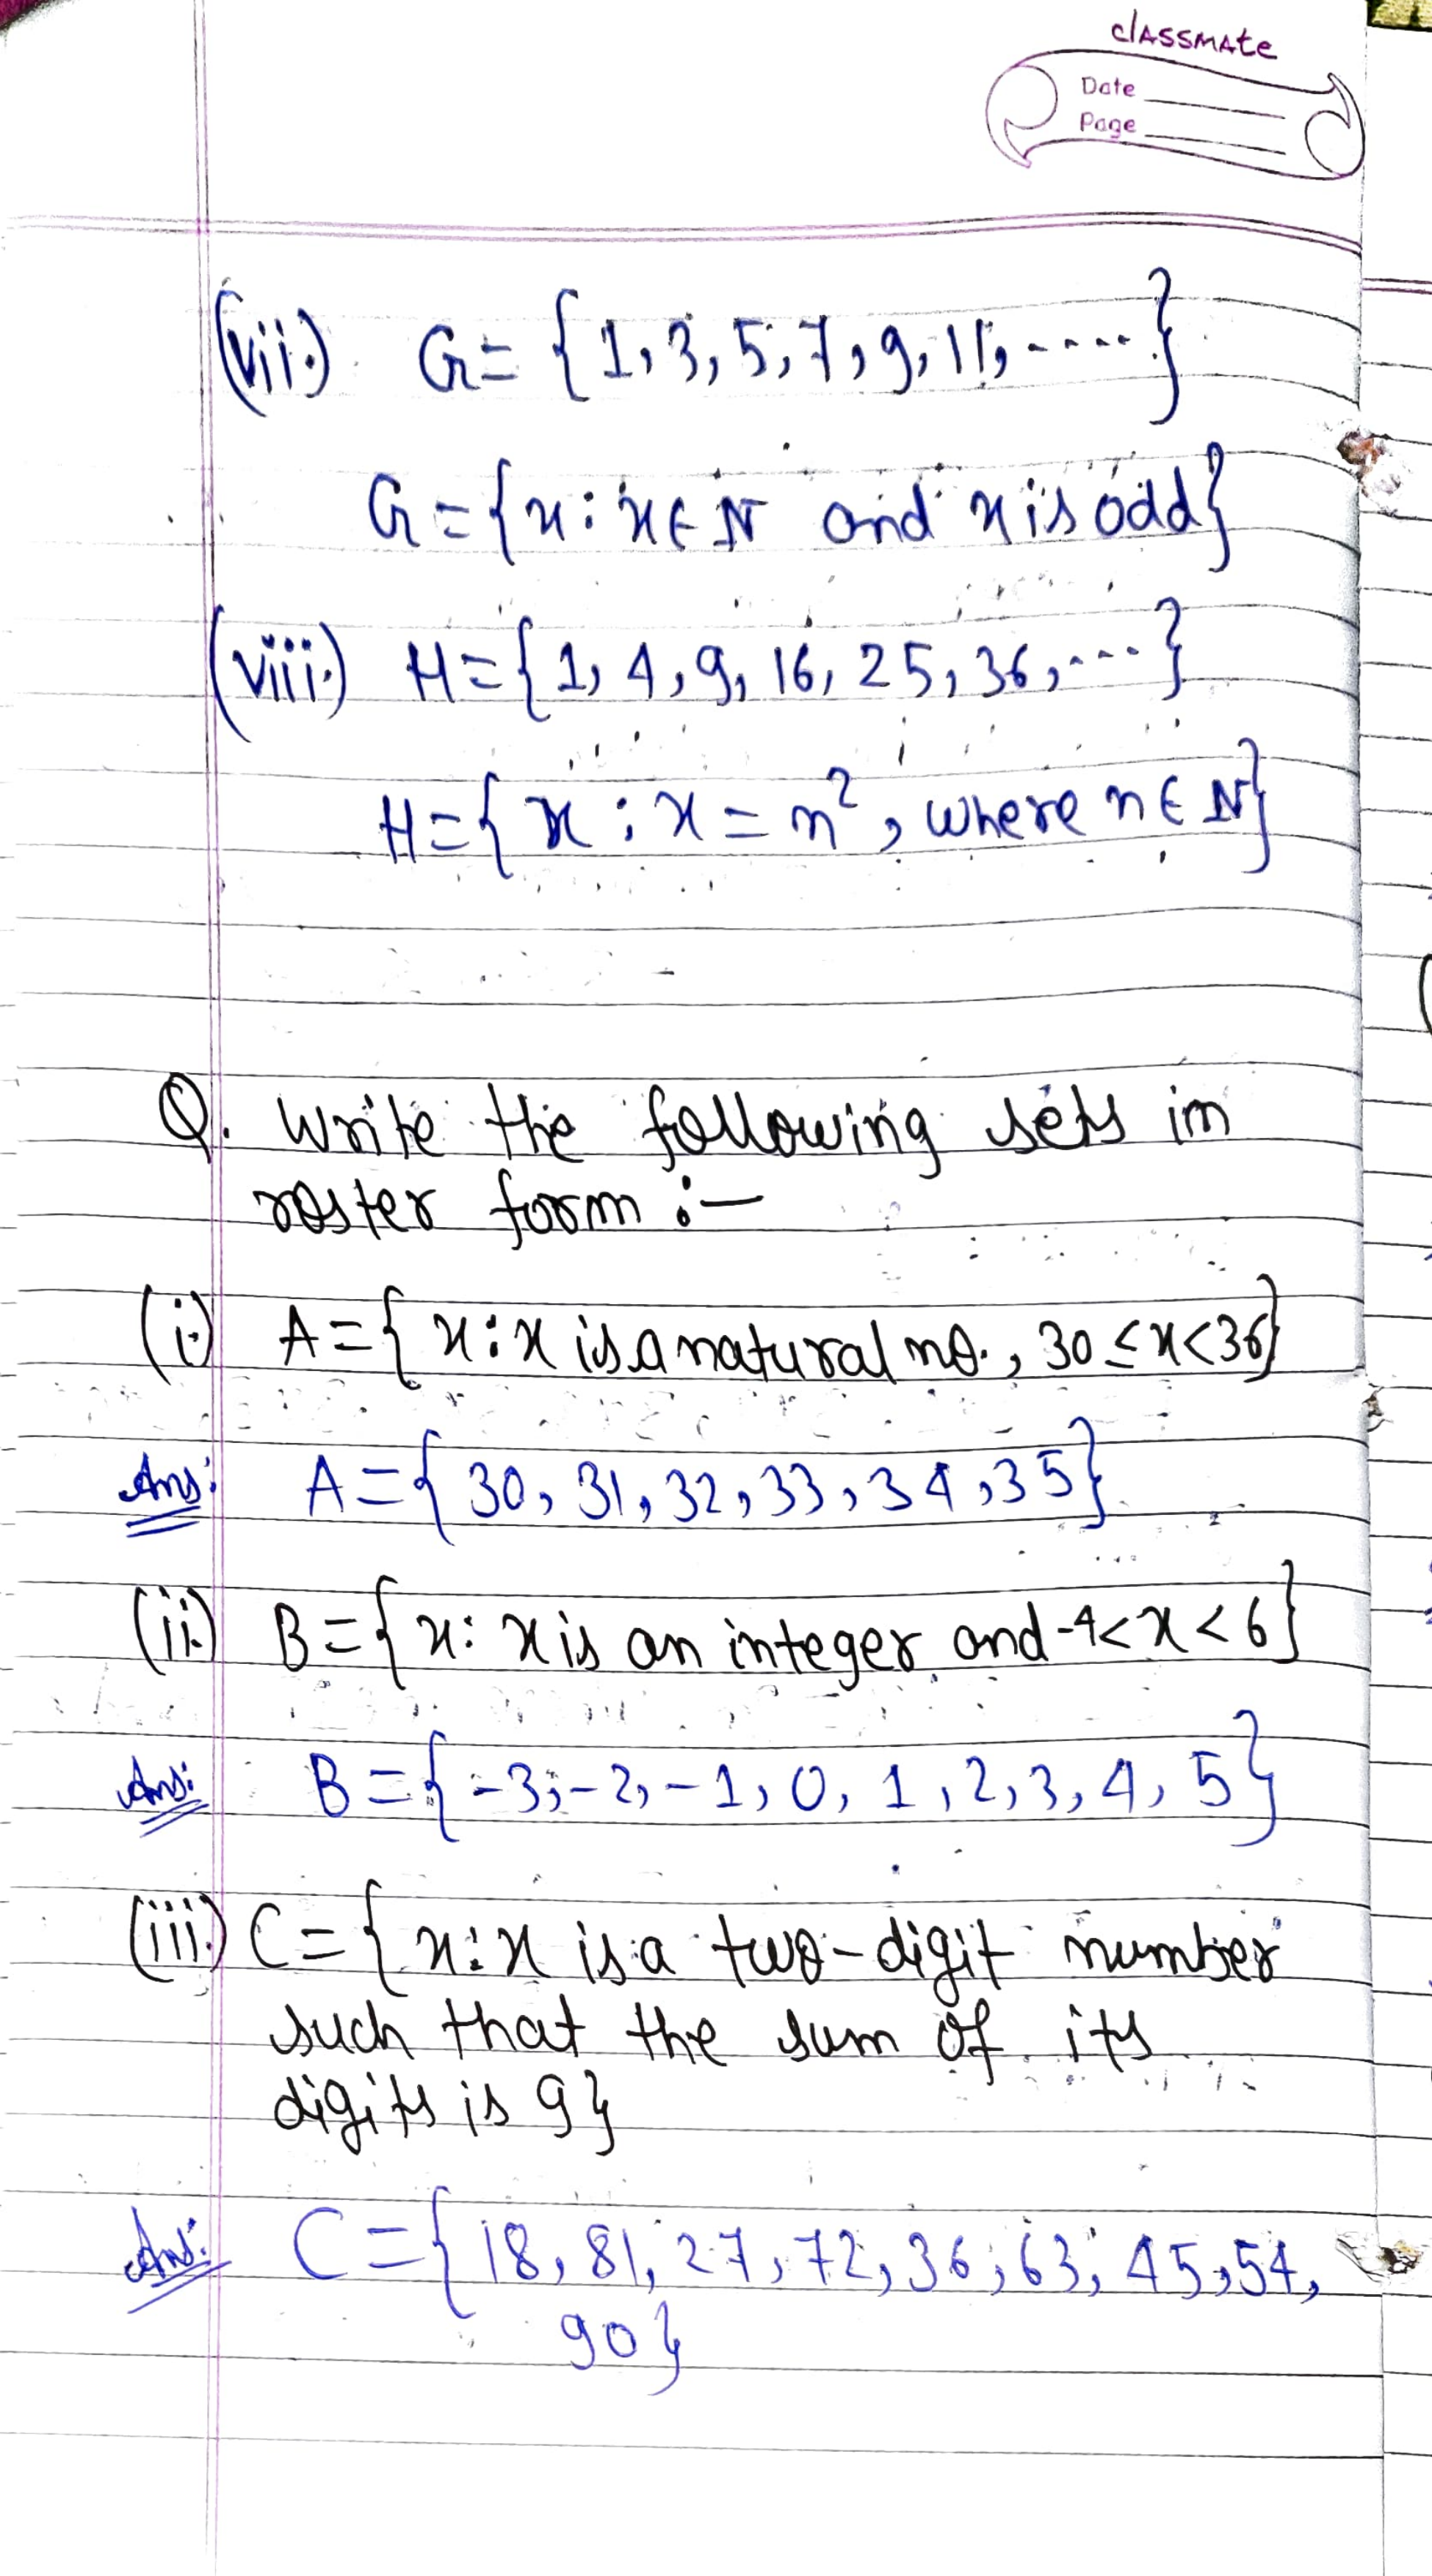 classmate
Date
Page
(vii.) G = {1, 3, 5, 7, 9, 11, .....}
G = {x : x ∈ N and x is odd}
(viii.) H = {1, 4, 9, 16, 25, 36, ....}
H = {x : x = n², where n ∈ N}
Q. Write the following sets in
roster form :–
(i.) A = {x : x is a natural no., 30 ≤ x < 36}
Ans: A = {30, 31, 32, 33, 34, 35}
(ii.) B = {x : x is an integer and -4 < x < 6}
Ans: B = {-3, -2, -1, 0, 1, 2, 3, 4, 5}
(iii.) C = {x : x is a two-digit number
such that the sum of its
digits is 9}
Ans: C = {18, 81, 27, 72, 36, 63, 45, 54,
90}